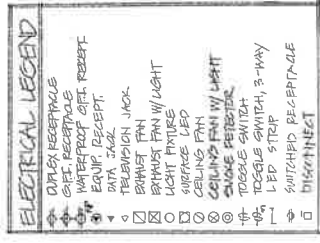 ELECTRICAL LEGEND
DUPLEX RECEPTACLE
G.F.I. RECEPTACLE
WATERPROOF G.F.I. RECEPT.
EQUIP. RECEPT.
DATA JACK
TELEVISION JACK
EXHAUST FAN
EXHAUST FAN W/ LIGHT
LIGHT FIXTURE
SURFACE LED
CEILING FAN
CEILING FAN W/ LIGHT
SMOKE DETECTOR
TOGGLE SWITCH
TOGGLE SWITCH, 3-WAY
LED STRIP
SWITCHED RECEPTACLE
DISCONNECT